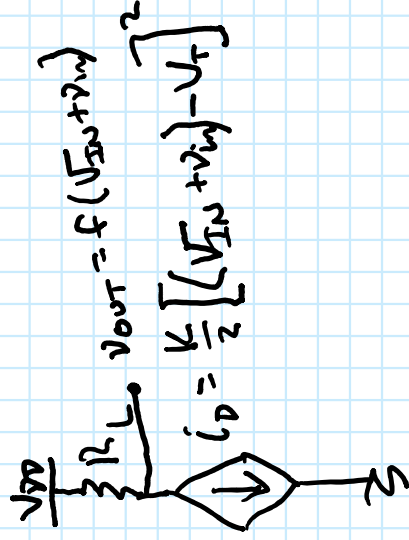 V_DD
R_L
v_OUT = f(V_IN + v_in)
i_D = K/2 [(V_IN + v_in) - V_T]^2